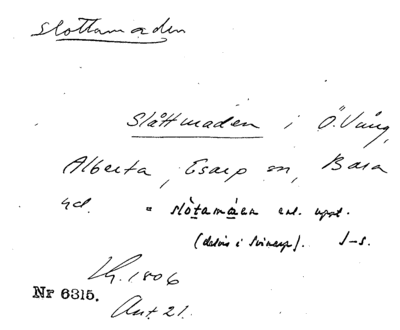 Slottamaden
Slåttmaden i Ö. Vång,
Alberta, Esarp sn, Bara
hd. = slòtamáen enl. uppt.
(delvis i Svinarp). J-s.
Nr 6315.
Ant. 21.